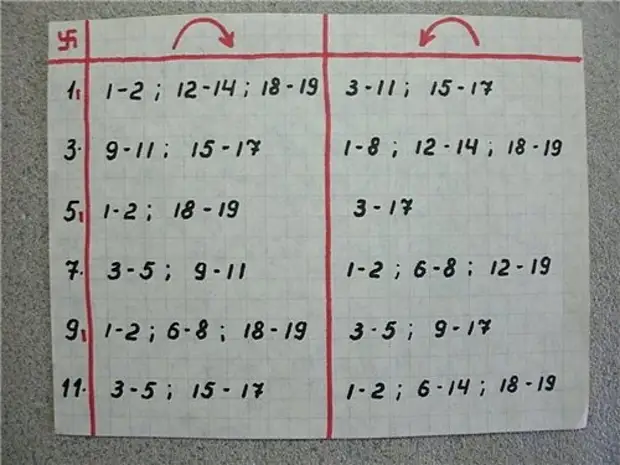 卐
1. 1-2 ; 12-14 ; 18-19 3-11 ; 15-17
3. 9-11 ; 15-17 1-8 ; 12-14 ; 18-19
5. 1-2 ; 18-19 3-17
7. 3-5 ; 9-11 1-2 ; 6-8 ; 12-19
9. 1-2 ; 6-8 ; 18-19 3-5 ; 9-17
11. 3-5 ; 15-17 1-2 ; 6-14 ; 18-19